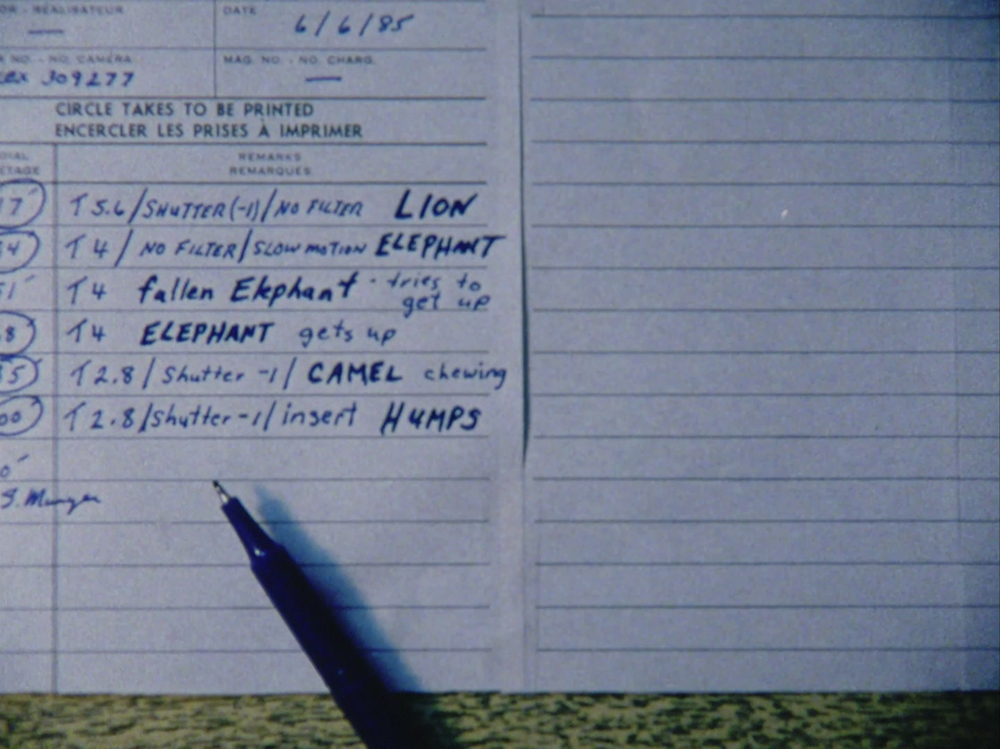 DATE
6/6/85
NO. - NO. CAMÉRA
MAG. NO. - NO. CHARG.
309277
—
CIRCLE TAKES TO BE PRINTED
ENCERCLER LES PRISES À IMPRIMER
REMARKS
REMARQUES
T 5.6/SHUTTER(-1)/NO FILTER LION
T 4 / NO FILTER/SLOW MOTION ELEPHANT
T4 fallen Elephant - tries to
get up
T4 ELEPHANT gets up
T 2.8 / Shutter -1/ CAMEL chewing
T 2.8/Shutter -1/insert HUMPS